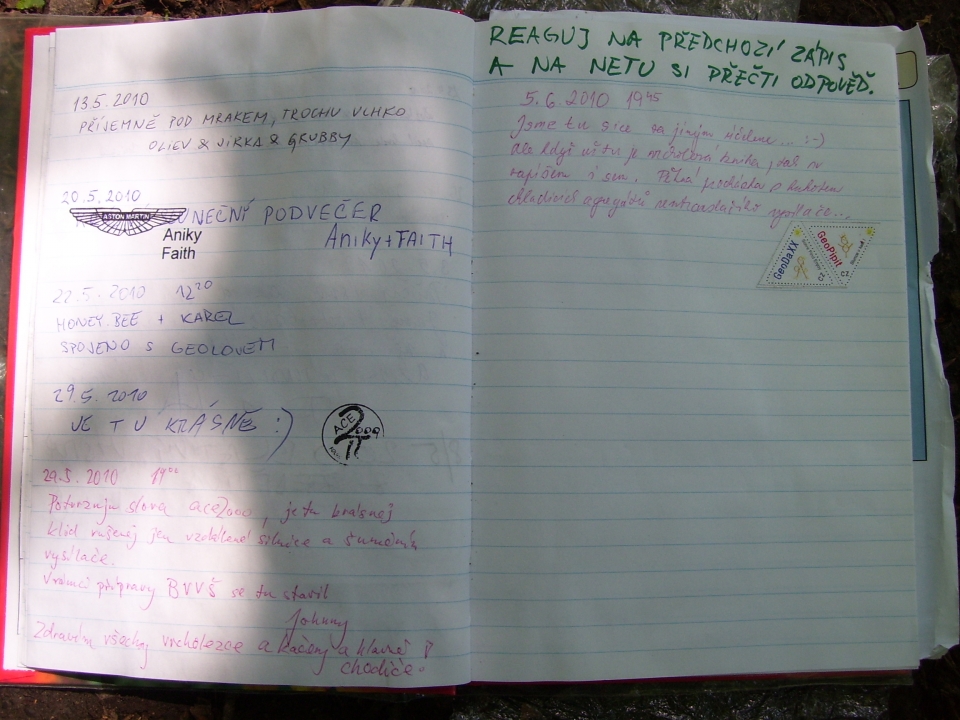 13.5.2010
PŘÍJEMNĚ POD MRAKEM, TROCHU VLHKO
OLIEV & JIRKA & GRUBBY
20.5.2010
ASTON MARTIN
PODVEČER
Aniky
Faith
ANIKY + FAITH
22.5.2010 12 20
HONEY.BEE + KAREL
SPOJENO S GEOLOVEM
29.5.2010
JE TU KRÁSNĚ :)
ACE
2009
29.5.2010 19 00
Potvrzuju slova ace2000, je tu krásnej
klid rušenej jen vzdálené silnice a šuměním
vysílače.
V rámci přípravy BVVŠ se tu stavil
Johnny
Zdravím všechny vrcholezce a kačery a hlavně
chodiče.
REAGUJ NA PŘEDCHOZÍ ZÁPIS
A NA NETU SI PŘEČTI ODPOVĚĎ.
5.6.2010 19 45
Jsme tu sice za jiným účelem... :-)
ale když už tu je vrcholová kniha, tak se
zapíšem i sem. Pěkná procházka
chladících agregátů vysílače...
GeoDaXX
CZ
GeoPipit
CZ